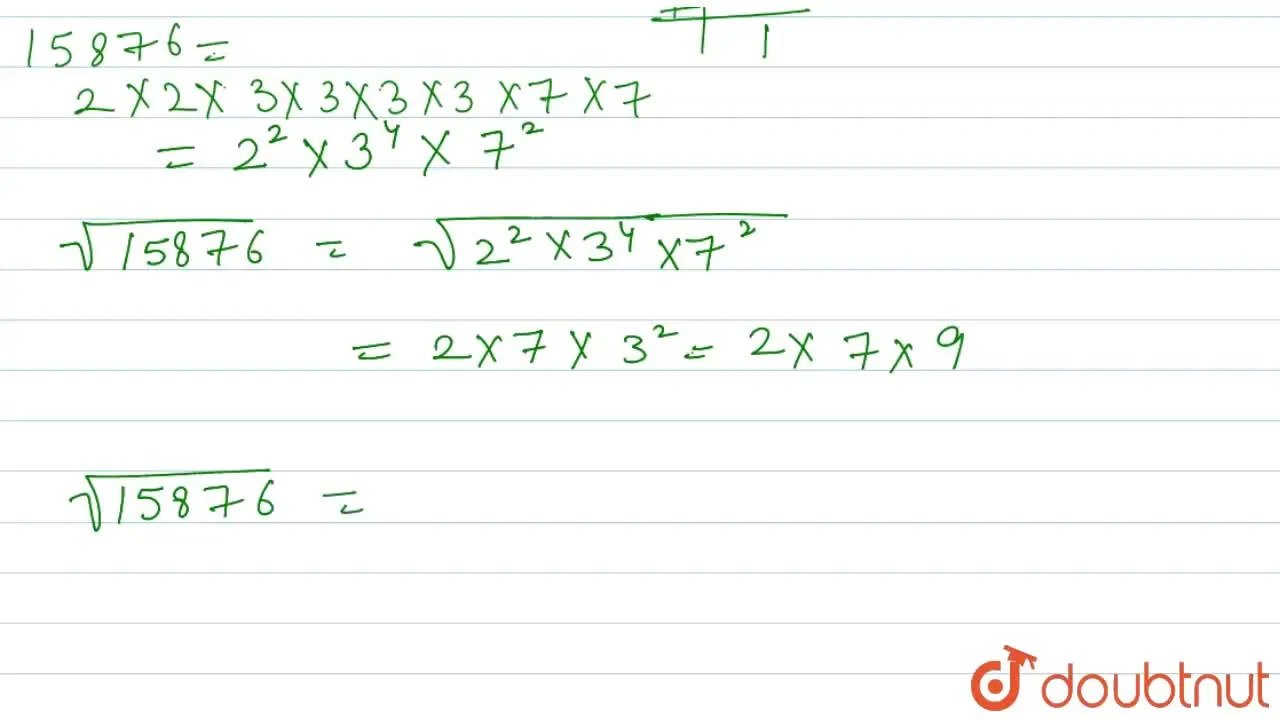 15876 =
2 × 2 × 3 × 3 × 3 × 3 × 7 × 7
= 2² × 3⁴ × 7²
√15876 = √2² × 3⁴ × 7²
= 2 × 7 × 3² = 2 × 7 × 9
√15876 =
doubtnut